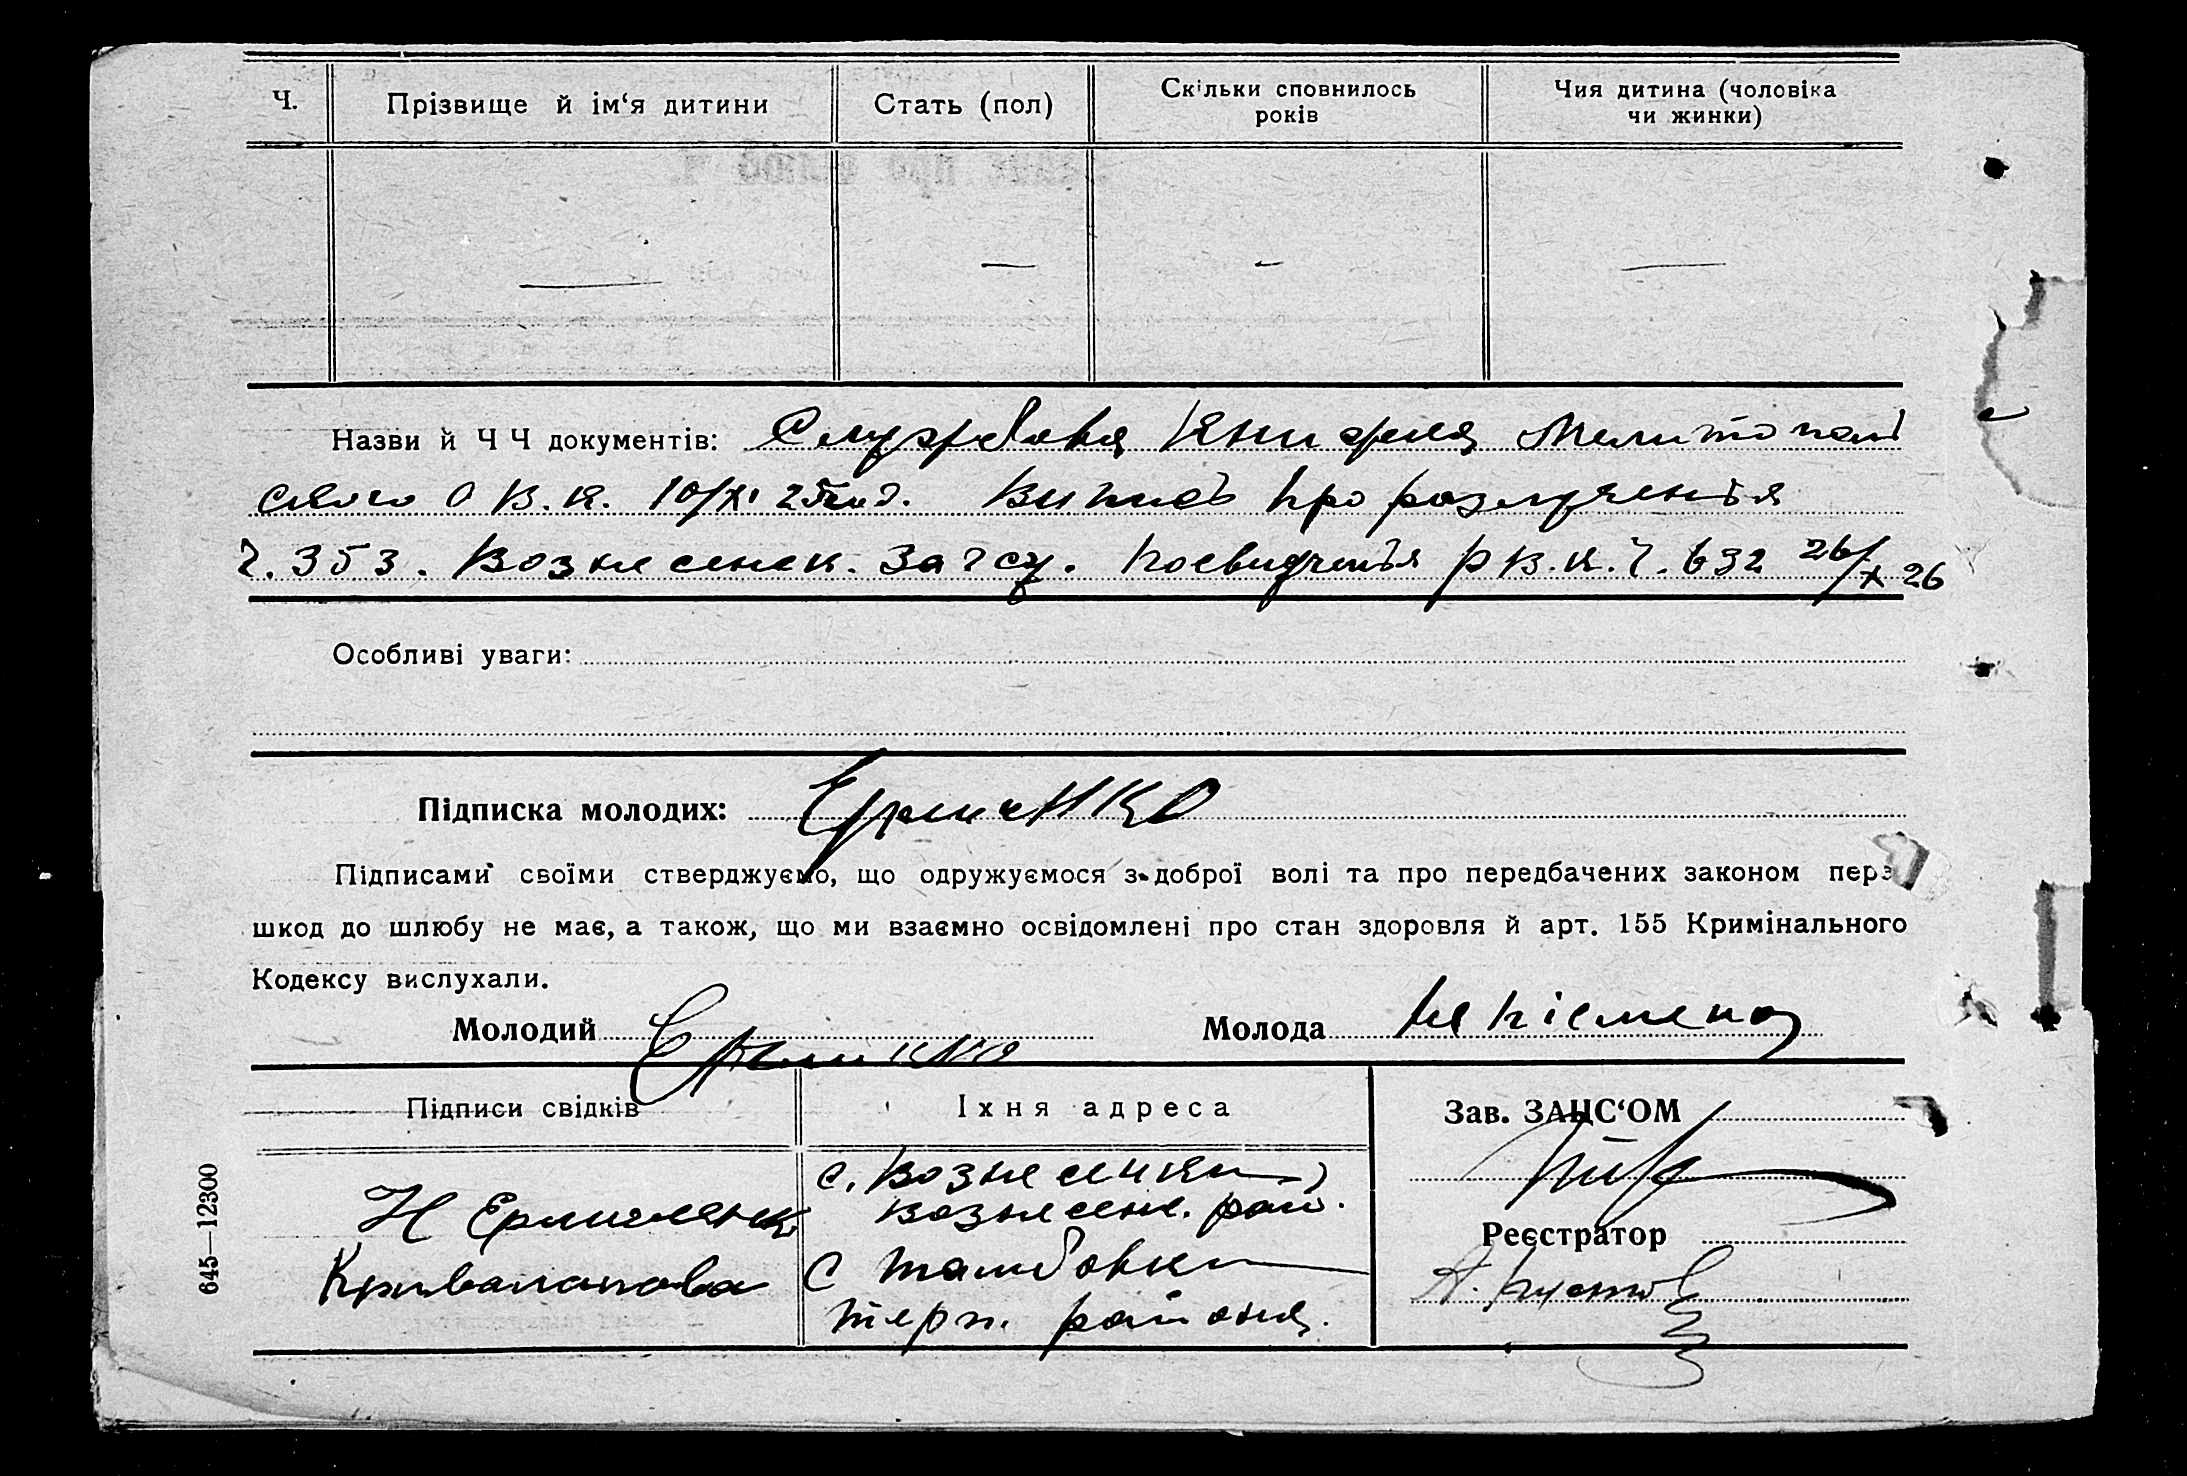 Ч.
Прізвище й ім‘я дитини
Стать (пол)
Скільки сповнилось
років
Чия дитина (чоловіка
чи жинки)
Назви й Ч Ч документів: Службова книжка Мелитополь
ського О В.К. 10/XI 25 Випись про розлучення
ч. 353. Вознесенск. Загсу. Посвидчення Р В.К. ч. 632 26/X 26
Особливі уваги:
Підписка молодих:
Підписами своїми стверджуємо, що одружуємося з доброї волі та про передбачених законом пере
шкод до шлюбу не має, а також, що ми взаємно освідомлені про стан здоровля й арт. 155 Кримінального
Кодексу вислухали.
Молодий
Молода неписмена
Підписи свідків
Їхня адреса
Зав. ЗАЦС‘ОМ
Н
с. Вознесенки
Вознесенс. рай.
Реєстратор
Кривалапова
С Тамбовки
терп. района.
А.
645—12300